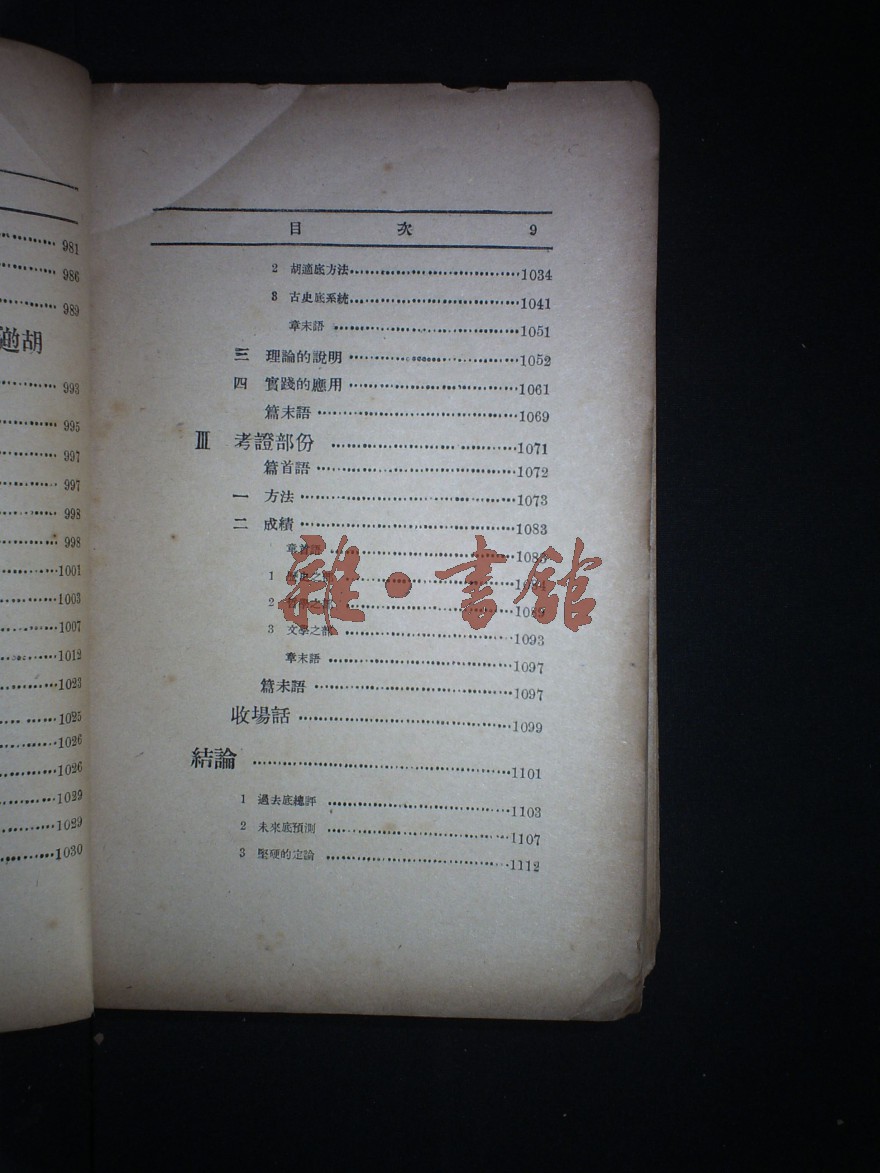 981
986
989
胡
993
995
997
997
998
998
1001
1003
1007
1012
1023
1025
1026
1026
1029
1029
1030
目 次 9
2 胡適底方法 1034
3 古史底系統 1041
章末語 1051
三 理論的說明 1052
四 實踐的應用 1061
篇末語 1069
Ⅲ 考證部份 1071
篇首語 1072
一 方法 1073
二 成績 1083
章首語 1083
1 1084
2 哲學之部 1089
3 文學之部 1093
章末語 1097
篇末語 1097
收場話 1099
結論 1101
1 過去底總評 1103
2 未來底預測 1107
3 堅硬的定論 1112
雜·書館